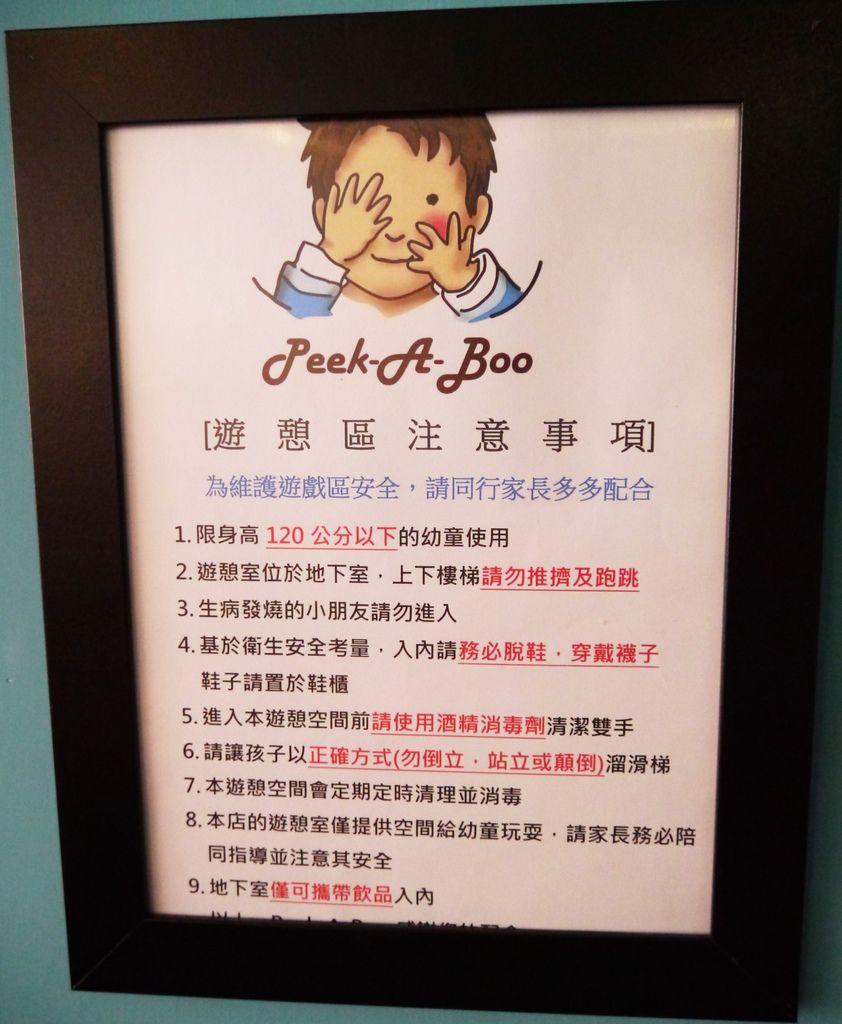 Peek-A-Boo
[遊憩區注意事項]
為維護遊戲區安全，請同行家長多多配合
1. 限身高 120 公分以下的幼童使用
2. 遊憩室位於地下室，上下樓梯請勿推擠及跑跳
3. 生病發燒的小朋友請勿進入
4. 基於衛生安全考量，入內請務必脫鞋，穿戴襪子
鞋子請置於鞋櫃
5. 進入本遊憩空間前請使用酒精消毒劑清潔雙手
6. 請讓孩子以正確方式(勿倒立，站立或顛倒)溜滑梯
7. 本遊憩空間會定期定時清理並消毒
8. 本店的遊憩室僅提供空間給幼童玩耍，請家長務必陪
同指導並注意其安全
9. 地下室僅可攜帶飲品入內